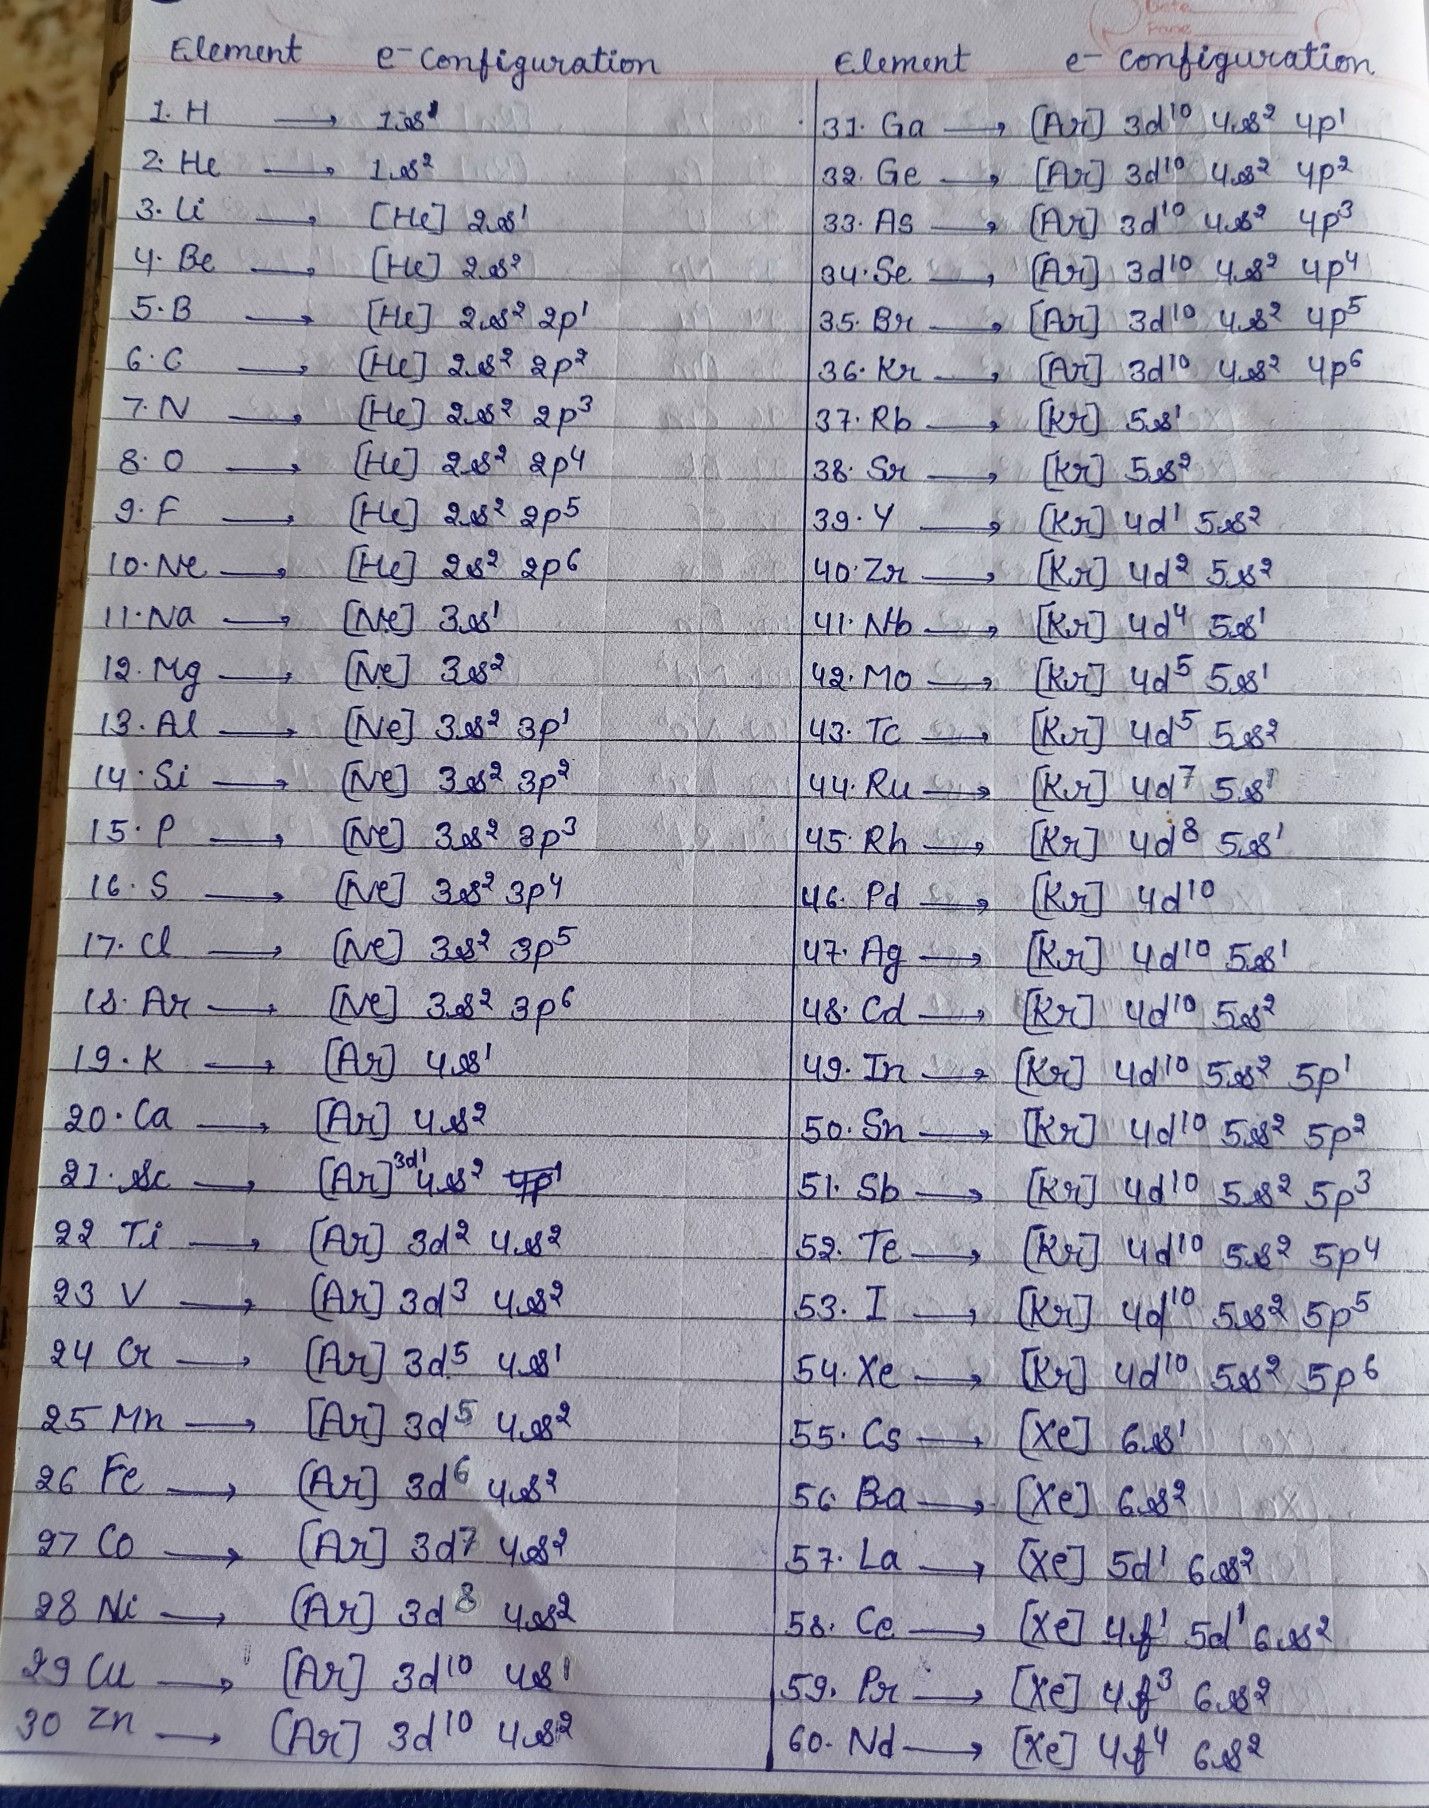 Date
Page
Element e⁻ configuration
1. H → 1s¹
2. He → 1s²
3. Li → [He] 2s¹
4. Be → [He] 2s²
5. B → [He] 2s² 2p¹
6. C → [He] 2s² 2p²
7. N → [He] 2s² 2p³
8. O → [He] 2s² 2p⁴
9. F → [He] 2s² 2p⁵
10. Ne → [He] 2s² 2p⁶
11. Na → [Ne] 3s¹
12. Mg → [Ne] 3s²
13. Al → [Ne] 3s² 3p¹
14. Si → [Ne] 3s² 3p²
15. P → [Ne] 3s² 3p³
16. S → [Ne] 3s² 3p⁴
17. Cl → [Ne] 3s² 3p⁵
18. Ar → [Ne] 3s² 3p⁶
19. K → [Ar] 4s¹
20. Ca → [Ar] 4s²
21. Sc → [Ar] 3d¹ 4s² 4p¹
22 Ti → [Ar] 3d² 4s²
23 V → [Ar] 3d³ 4s²
24 Cr → [Ar] 3d⁵ 4s¹
25 Mn → [Ar] 3d⁵ 4s²
26 Fe → [Ar] 3d⁶ 4s²
27 Co → [Ar] 3d⁷ 4s²
28 Ni → [Ar] 3d⁸ 4s²
29 Cu → [Ar] 3d¹⁰ 4s¹
30 Zn → [Ar] 3d¹⁰ 4s²
Element e⁻ configuration
31. Ga → [Ar] 3d¹⁰ 4s² 4p¹
32. Ge → [Ar] 3d¹⁰ 4s² 4p²
33. As → [Ar] 3d¹⁰ 4s² 4p³
34. Se → [Ar] 3d¹⁰ 4s² 4p⁴
35. Br → [Ar] 3d¹⁰ 4s² 4p⁵
36. Kr → [Ar] 3d¹⁰ 4s² 4p⁶
37. Rb → [Kr] 5s¹
38. Sr → [Kr] 5s²
39. Y → [Kr] 4d¹ 5s²
40. Zr → [Kr] 4d² 5s²
41. Nb → [Kr] 4d⁴ 5s¹
42. Mo → [Kr] 4d⁵ 5s¹
43. Tc → [Kr] 4d⁵ 5s²
44. Ru → [Kr] 4d⁷ 5s¹
45. Rh → [Kr] 4d⁸ 5s¹
46. Pd → [Kr] 4d¹⁰
47. Ag → [Kr] 4d¹⁰ 5s¹
48. Cd → [Kr] 4d¹⁰ 5s²
49. In → [Kr] 4d¹⁰ 5s² 5p¹
50. Sn → [Kr] 4d¹⁰ 5s² 5p²
51. Sb → [Kr] 4d¹⁰ 5s² 5p³
52. Te → [Kr] 4d¹⁰ 5s² 5p⁴
53. I → [Kr] 4d¹⁰ 5s² 5p⁵
54. Xe → [Kr] 4d¹⁰ 5s² 5p⁶
55. Cs → [Xe] 6s¹
56 Ba → [Xe] 6s²
57. La → [Xe] 5d¹ 6s²
58. Ce → [Xe] 4f¹ 5d¹ 6s²
59. Pr → [Xe] 4f³ 6s²
60. Nd → [Xe] 4f⁴ 6s²